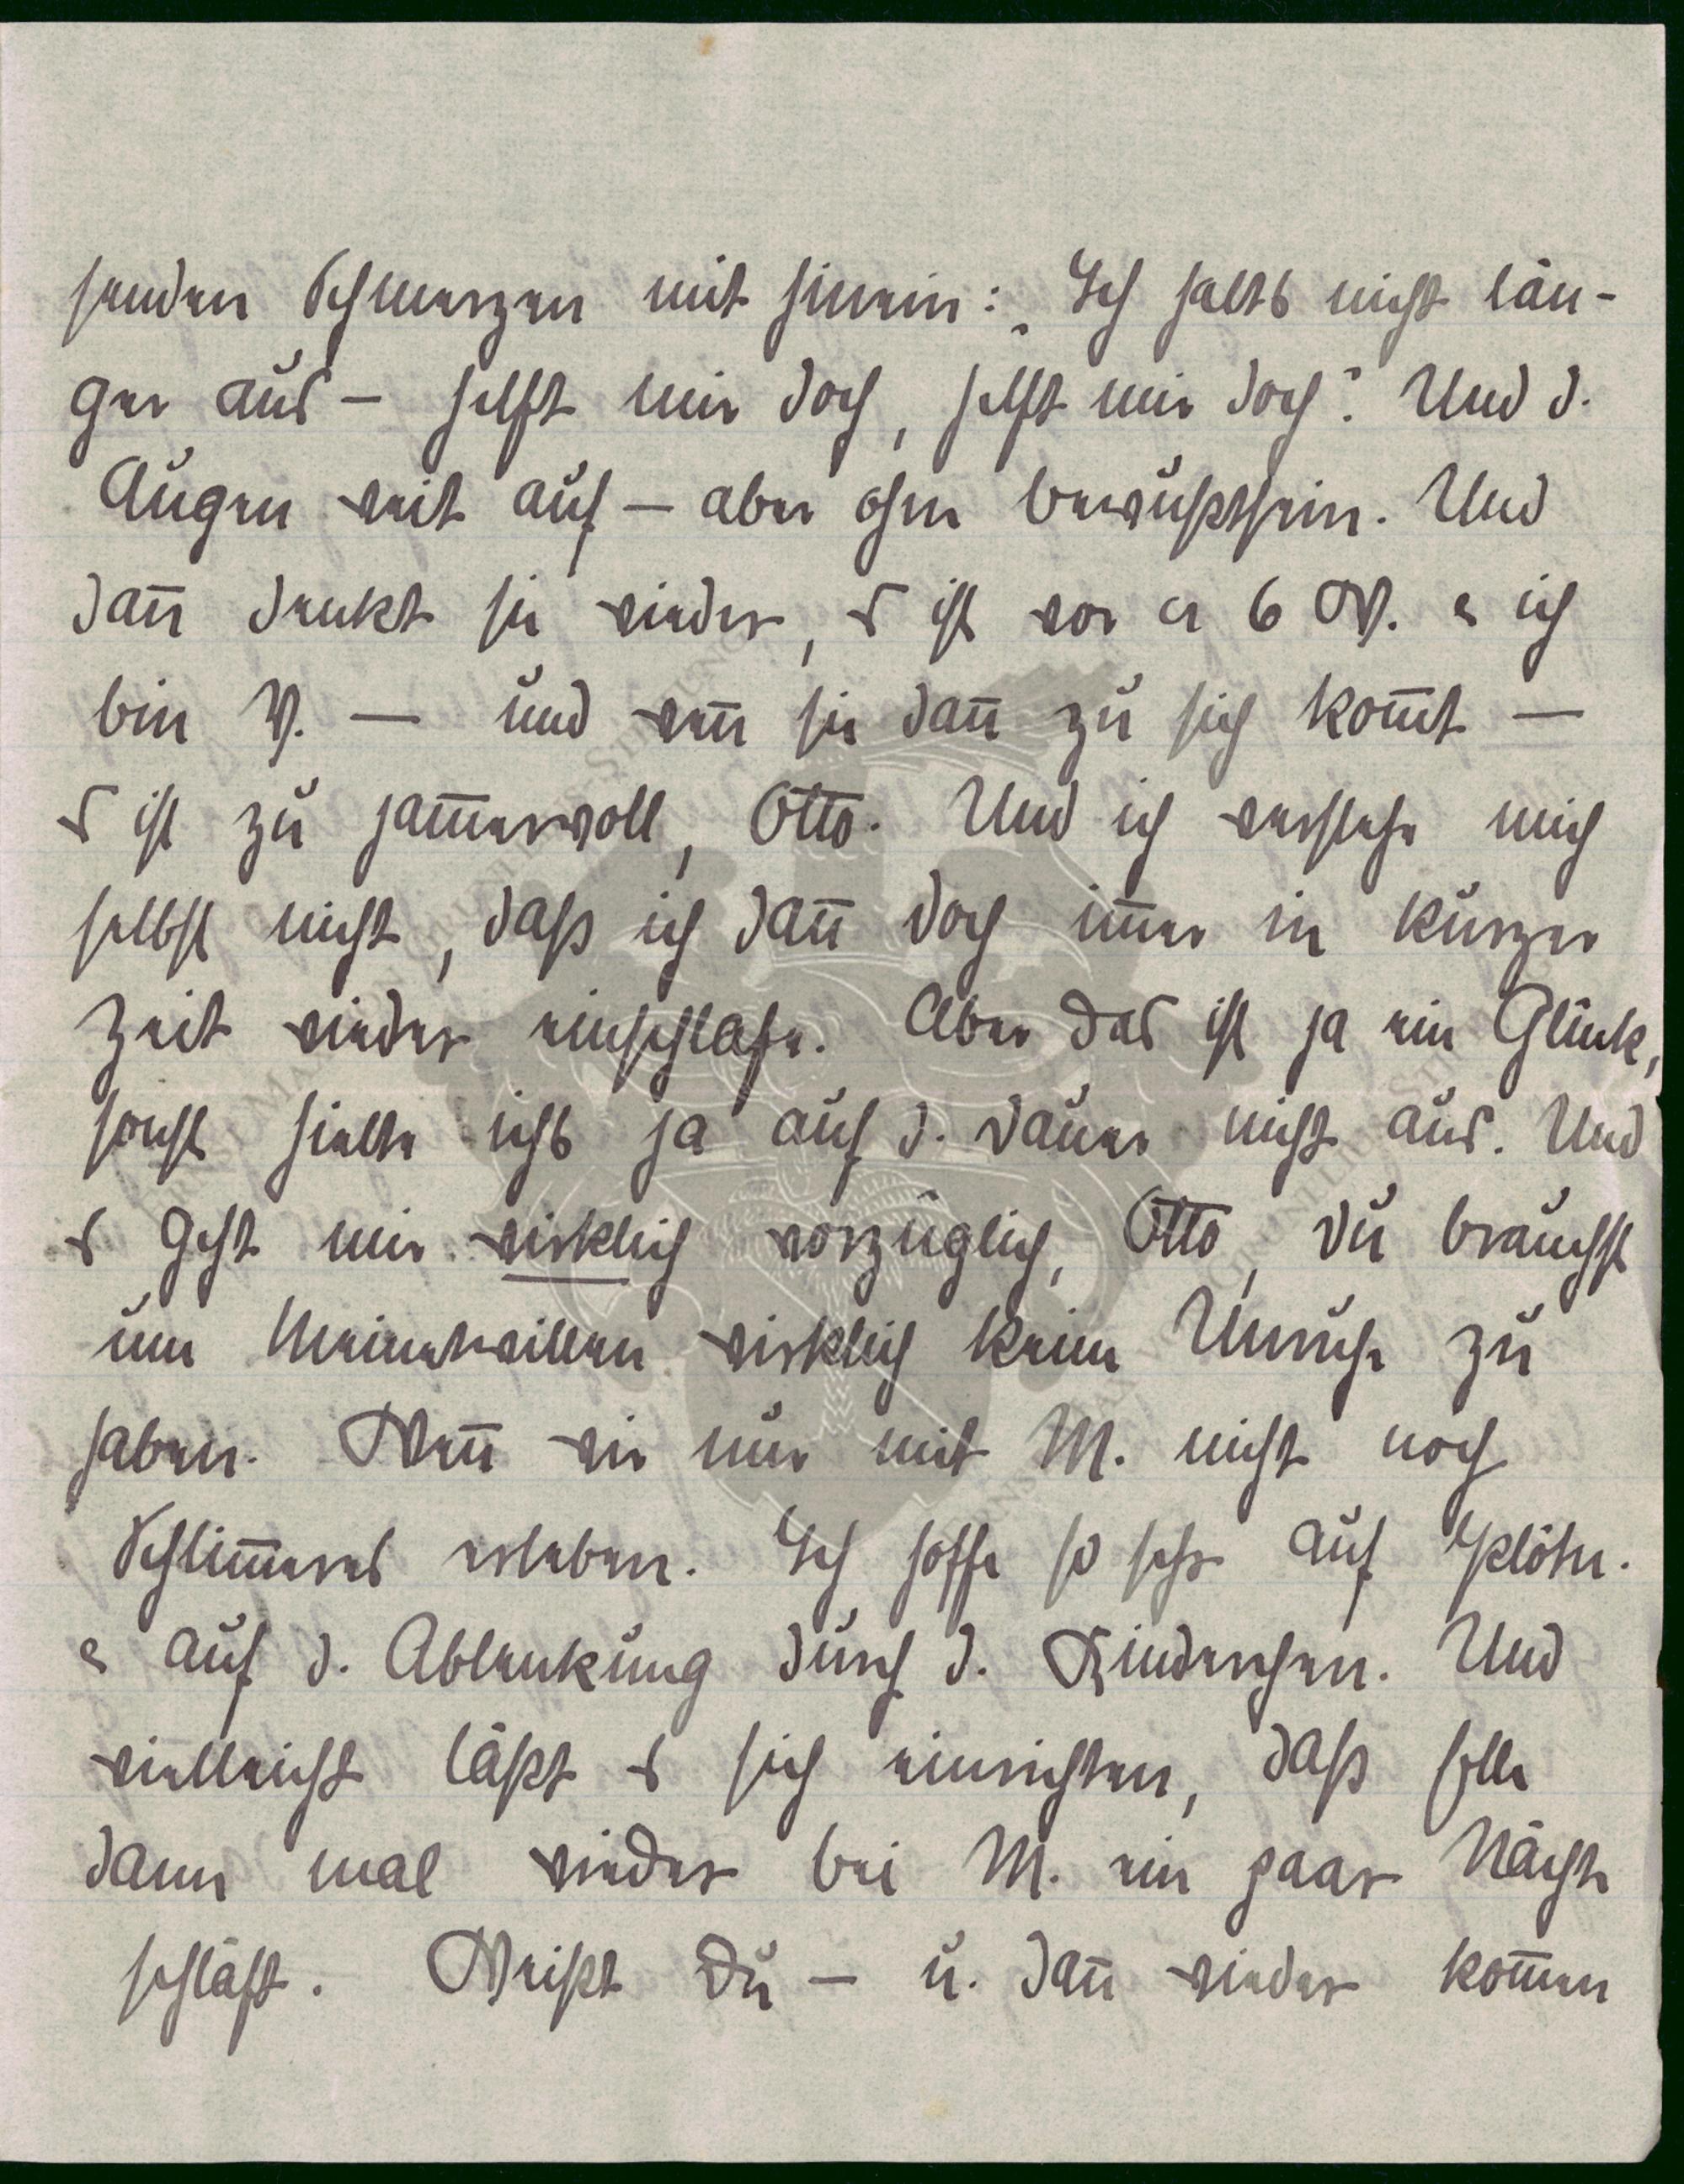 senden Schmerzen mit hinein: „Ich halts nicht län-
ger aus – helft mir doch, helft mir doch". Und d.
Augen weit auf – aber ohne bewußtsein. Und
dañ denkt sie wieder, es ist vor 6 W. & ich
bin V. – und weñ sie dañ zu sich kom̄t –
es ist zu jam̄ervoll, Otto. Und ich verstehe mich
selbst nicht, daß ich dañ doch im̄er in kurzer
Zeit wieder einschlafe. Aber das ist ja ein Glück,
sonst hielte ichs ja auf d. Dauer nicht aus. Und
es geht mir wirklich vorzüglich, Otto, Du brauchst
um Meinetwillen wirklich keine Unruhe zu
haben. Weñ wir nur mit M. nicht noch
Schlim̄eres erleben. Ich hoffe so sehr auf
& auf d. Ablenkung durch d. Kinderchen. Und
vielleicht läßt es sich einrichten, daß
dann mal wieder bei M. ein paar Nächte
schläft. Weißt Du – u. dañ wieder kom̄en